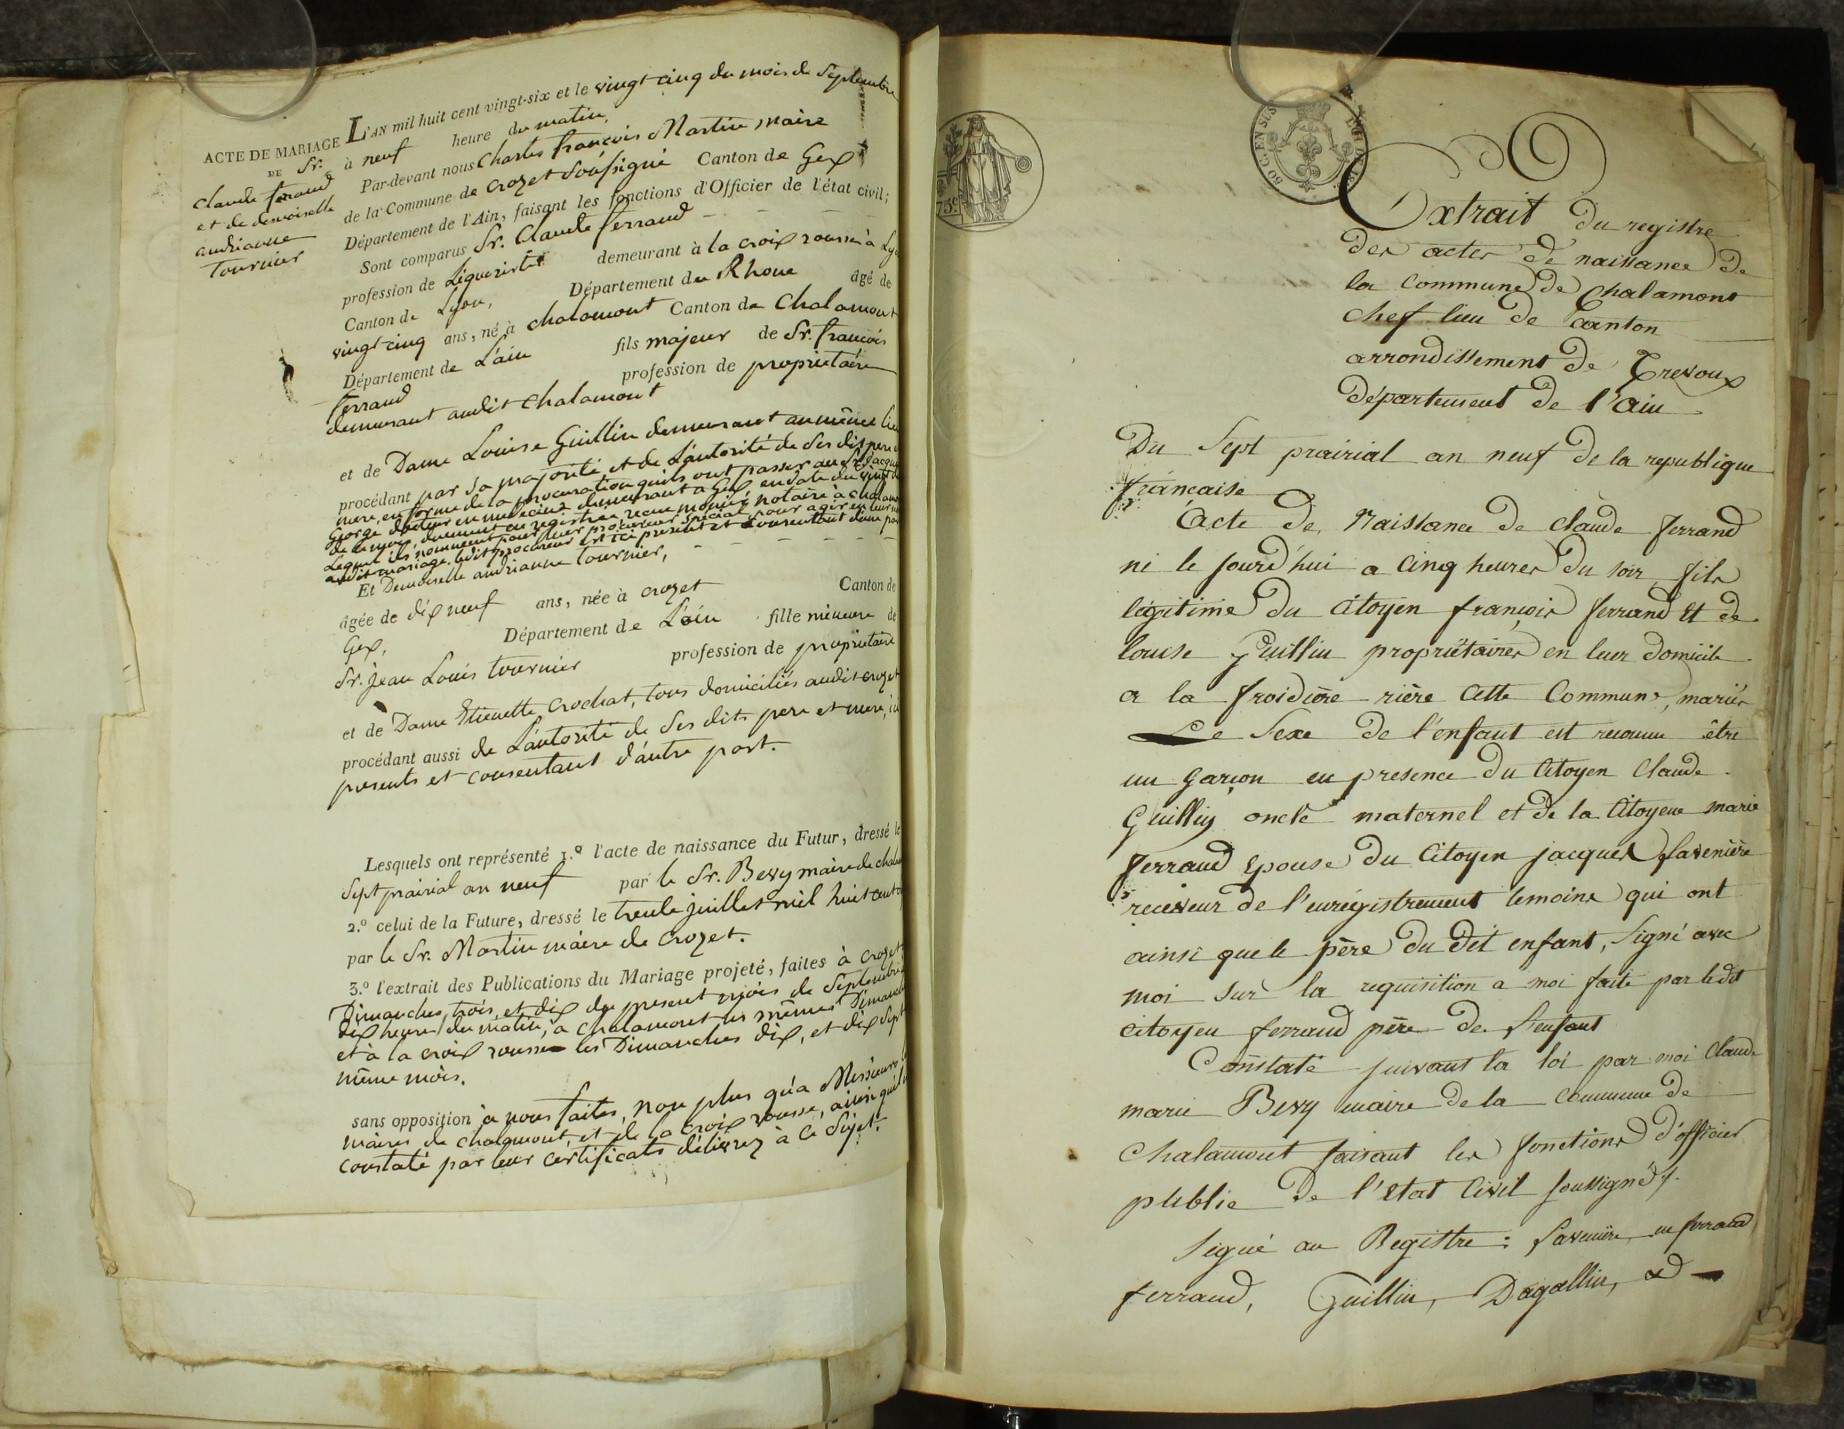 ACTE DE MARIAGE
DE Sr.
Claude ferraud
et de demoiselle
andrianne
Tournier
L'AN mil huit cent vingt-six et le vingt cinq du mois de Septembre
à neuf heure du matin,
Par-devant nous Charles françois Martin maire
de la Commune de Crozet Soussigné Canton de Gex
Département de l'Ain, faisant les fonctions d'Officier de l'état civil;
Sont comparus Sr. Claude ferraud
profession de Liquoriste demeurant à la croix rousse à Lyo
Canton de Lyon, Département du Rhone âgé de
vingt cinq ans, né à chalamont Canton de Chalamont
Département de L'ain fils majeur de Sr. françois
ferraud profession de propriétaire
demeurant audit Chalamont
et de Dame Louise Guillin demeurant au même lieu
procédant par sa majorité et de L'autorité de Ses dits pere
mere, en forme de la procuration qu'ils ont passer au Sr. Jacque
George docteur en medecine demeurant a Gex en date du vingt
Lequel ils nomment pour leur procureur spécial pour agir en leur
audit mariage. ledit procureur ici présent et consentant d'une par
Et Demoiselle andrianne Tournier,
âgée de dix neuf ans, née à crozet Canton de
Gex, Département de L'ain fille mineure de
Sr. Jean Louis Tournier profession de propriétaire
et de Dame Etienette Crochat, tous domiciliés audit crozet
procédant aussi de L'autorité de Ses dits pere et mere, ici
presents et consentant d'autre part.
Lesquels ont représenté 1.º l'acte de naissance du Futur, dressé le
Sept prairial an neuf par le Sr. Bevy maire de chala
2.º celui de la Future, dressé le trente juillet mil huit cent
par le Sr. Martin maire de Crozet.
3.º l'extrait des Publications du Mariage projeté, faites à crozet
Dimanches trois, et dix du present mois de Septembre
dix heures du matin, a Chalamont les mêmes Dimanch
et à la croix rousse les Dimanches dix, et dix Sept
même mois.
sans opposition à nous faites, non plus qu'a Messieurs
maires de chalamont, et de la Croix rousse, ainsi qu'il
constaté par leur certificats délivrez à ce Sujet.
75 c
Extrait du registre
des actes de naissance de
la Commune de Chalamont
chef lieu de Canton
arrondissement de Trevoux
département de l'ain
Du Sept prairial an neuf de la republique
française
Acte de Naissance de claude ferrand
né le jourd'hui a Cinq heures du soir fils
légitime du Citoyen françois ferrand et de
louise Guillin propriétaires en leur domicile
a la froidière rière Cette Commune, mariés
Le Sexe de l'enfant est reconnu être
un garçon en presence du Citoyen Claude
Guillin oncle maternel et de la Citoyene marie
ferraud Epouse du Citoyen jacques favenière
receveur de l'enregistrement temoins qui ont
ainsi que le père du dit enfant, Signé avec
moi sur la requisition a moi faite par ledit
citoyen ferraud père de l'enfant
Constaté suivant la loi par moi Claude
marie Bevy maire de la commune de
Chalamont faisant les fonctions d'officier
public de l'etat Civil soussignés.
Signé au Registre : favenière, m ferraud
ferraud, Guillin, Dagallin, &